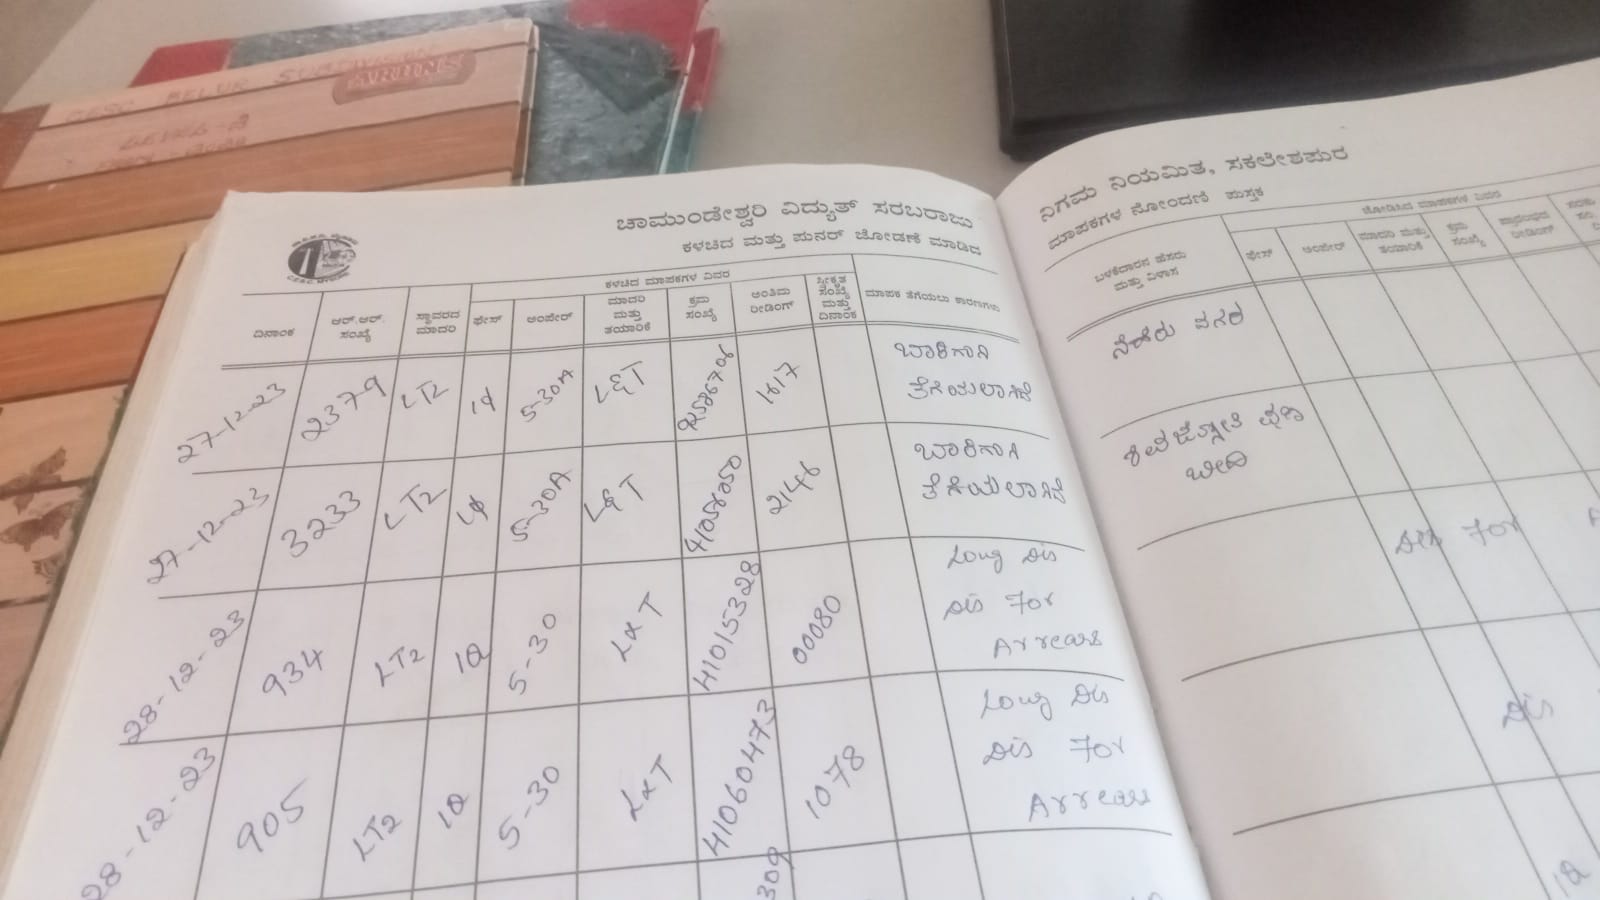 CESC BELUR SUBDIVISION
ಚಾಮುಂಡೇಶ್ವರಿ ವಿದ್ಯುತ್ ಸರಬರಾಜು
ಕಳಚಿದ ಮತ್ತು ಪುನರ್ ಜೋಡಣೆ ಮಾಡಿದ
ಕಳಚಿದ ಮಾಪಕಗಳ ವಿವರ
ದಿನಾಂಕ ಆರ್.ಆರ್. ಸಂಖ್ಯೆ ಸ್ಥಾವರದ ಮಾದರಿ ಫೇಸ್ ಅಂಪೇರ್ ಮಾದರಿ ಮತ್ತು ತಯಾರಿಕೆ ಕ್ರಮ ಸಂಖ್ಯೆ ಅಂತಿಮ ರೀಡಿಂಗ್ ಸ್ವೀಕೃತ ಸಂಖ್ಯೆ ಮತ್ತು ದಿನಾಂಕ ಮಾಪಕ ತೆಗೆಯಲು ಕಾರಣಗಳು
27-12-23 2379 LT2 1φ 5-30A L&T 1817
ತೆಗೆಯಲಾಗಿದೆ
27-12-23 3233 LT2 1φ 5-30A L&T 41058050 2148
ತೆಗೆಯಲಾಗಿದೆ
28-12-23 934 LT2 1φ 5-30 L&T 41015328 00080 Long Dis
Dis For
Arrears
28-12-23 905 LT2 1φ 5-30 L&T 41060473 1078 Long Dis
Dis For
Arrears
309
ನಿಗಮ ನಿಯಮಿತ, ಸಕಲೇಶಪುರ
ಮಾಪಕಗಳ ನೋಂದಣಿ ಪುಸ್ತಕ
ಜೋಡಿಸಿದ ಮಾಪಕಗಳ ವಿವರ
ಬಳಕೆದಾರನ ಹೆಸರು ಮತ್ತು ವಿಳಾಸ ಫೇಸ್ ಅಂಪೇರ್ ಮಾದರಿ ಮತ್ತು ತಯಾರಿಕೆ ಕ್ರಮ ಸಂಖ್ಯೆ ಪ್ರಾರಂಭದ ರೀಡಿಂಗ್
ನೆಹರು ನಗರ
ಬೀದಿ
Dis For
Dis
1φ